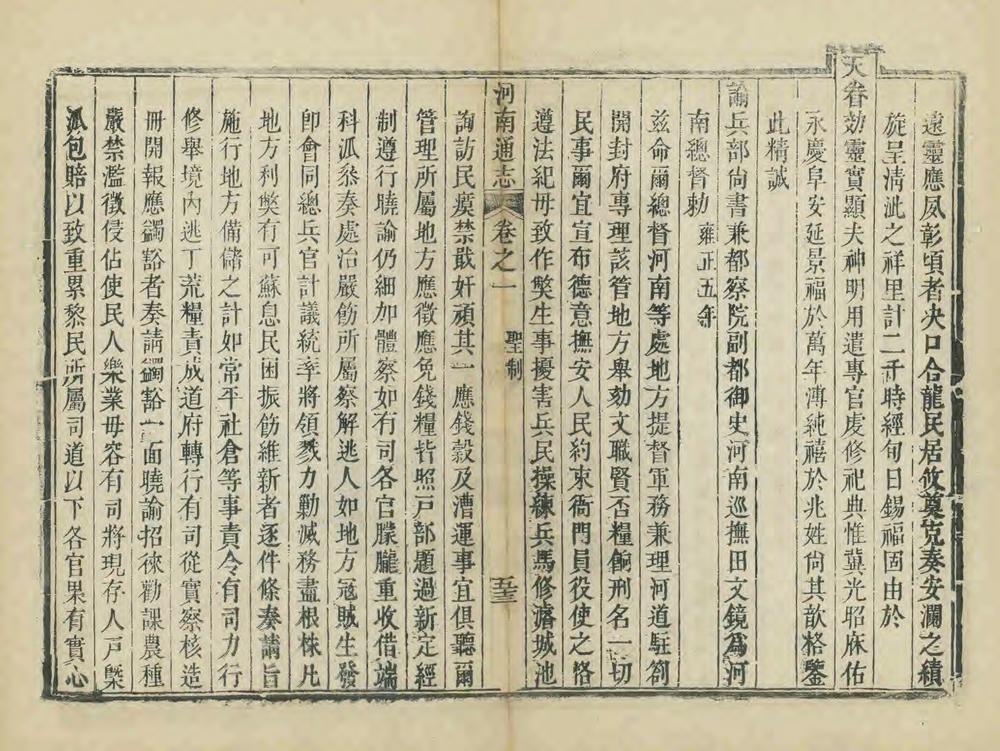 遠靈應夙彰頃者决口合龍民居攸奠克奏安瀾之績
旋呈清泚之祥里計二千時經旬日錫福固由於
天眷効靈實顯夫神明用遣專官虔修祀典惟冀光昭庥佑
永慶阜安延景福於萬年溥純禧於兆姓尙其歆格鑒
此精誠
諭兵部尙書兼都察院副都御史河南巡撫田文鏡爲河
南總督勅 雍正五年
兹命爾總督河南等處地方提督軍務兼理河道駐劄
開封府專理該管地方舉劾文職賢否糧餉刑名一切
民事爾宜宣布德意撫安人民約束衙門員役使之恪
遵法紀毋致作獘生事擾害兵民操練兵馬修濬城池
河南通志 卷之一 聖制 五十三
詢訪民瘼禁戢奸頑其一應錢穀及漕運事宜俱聽爾
管理所屬地方應徵應免錢糧皆照戸部題過新定經
制遵行曉諭仍細加體察如有司各官朦朧重收借端
科派叅奏處治嚴飭所屬察解逃人如地方冦賊生發
卽會同總兵官計議統率將領戮力勦滅務盡根株凡
地方利獘有可蘇息民困振飭維新者逐件條奏請旨
施行地方備儲之計如常平社倉等事責令有司力行
修舉境內逃丁荒糧責成道府轉行有司從實察核造
冊開報應蠲豁者奏請蠲豁一面曉諭招徠勸課農種
嚴禁濫徵侵佔使民人樂業毋容有司將現存人戸槩
派包賠以致重累黎民所屬司道以下各官果有實心